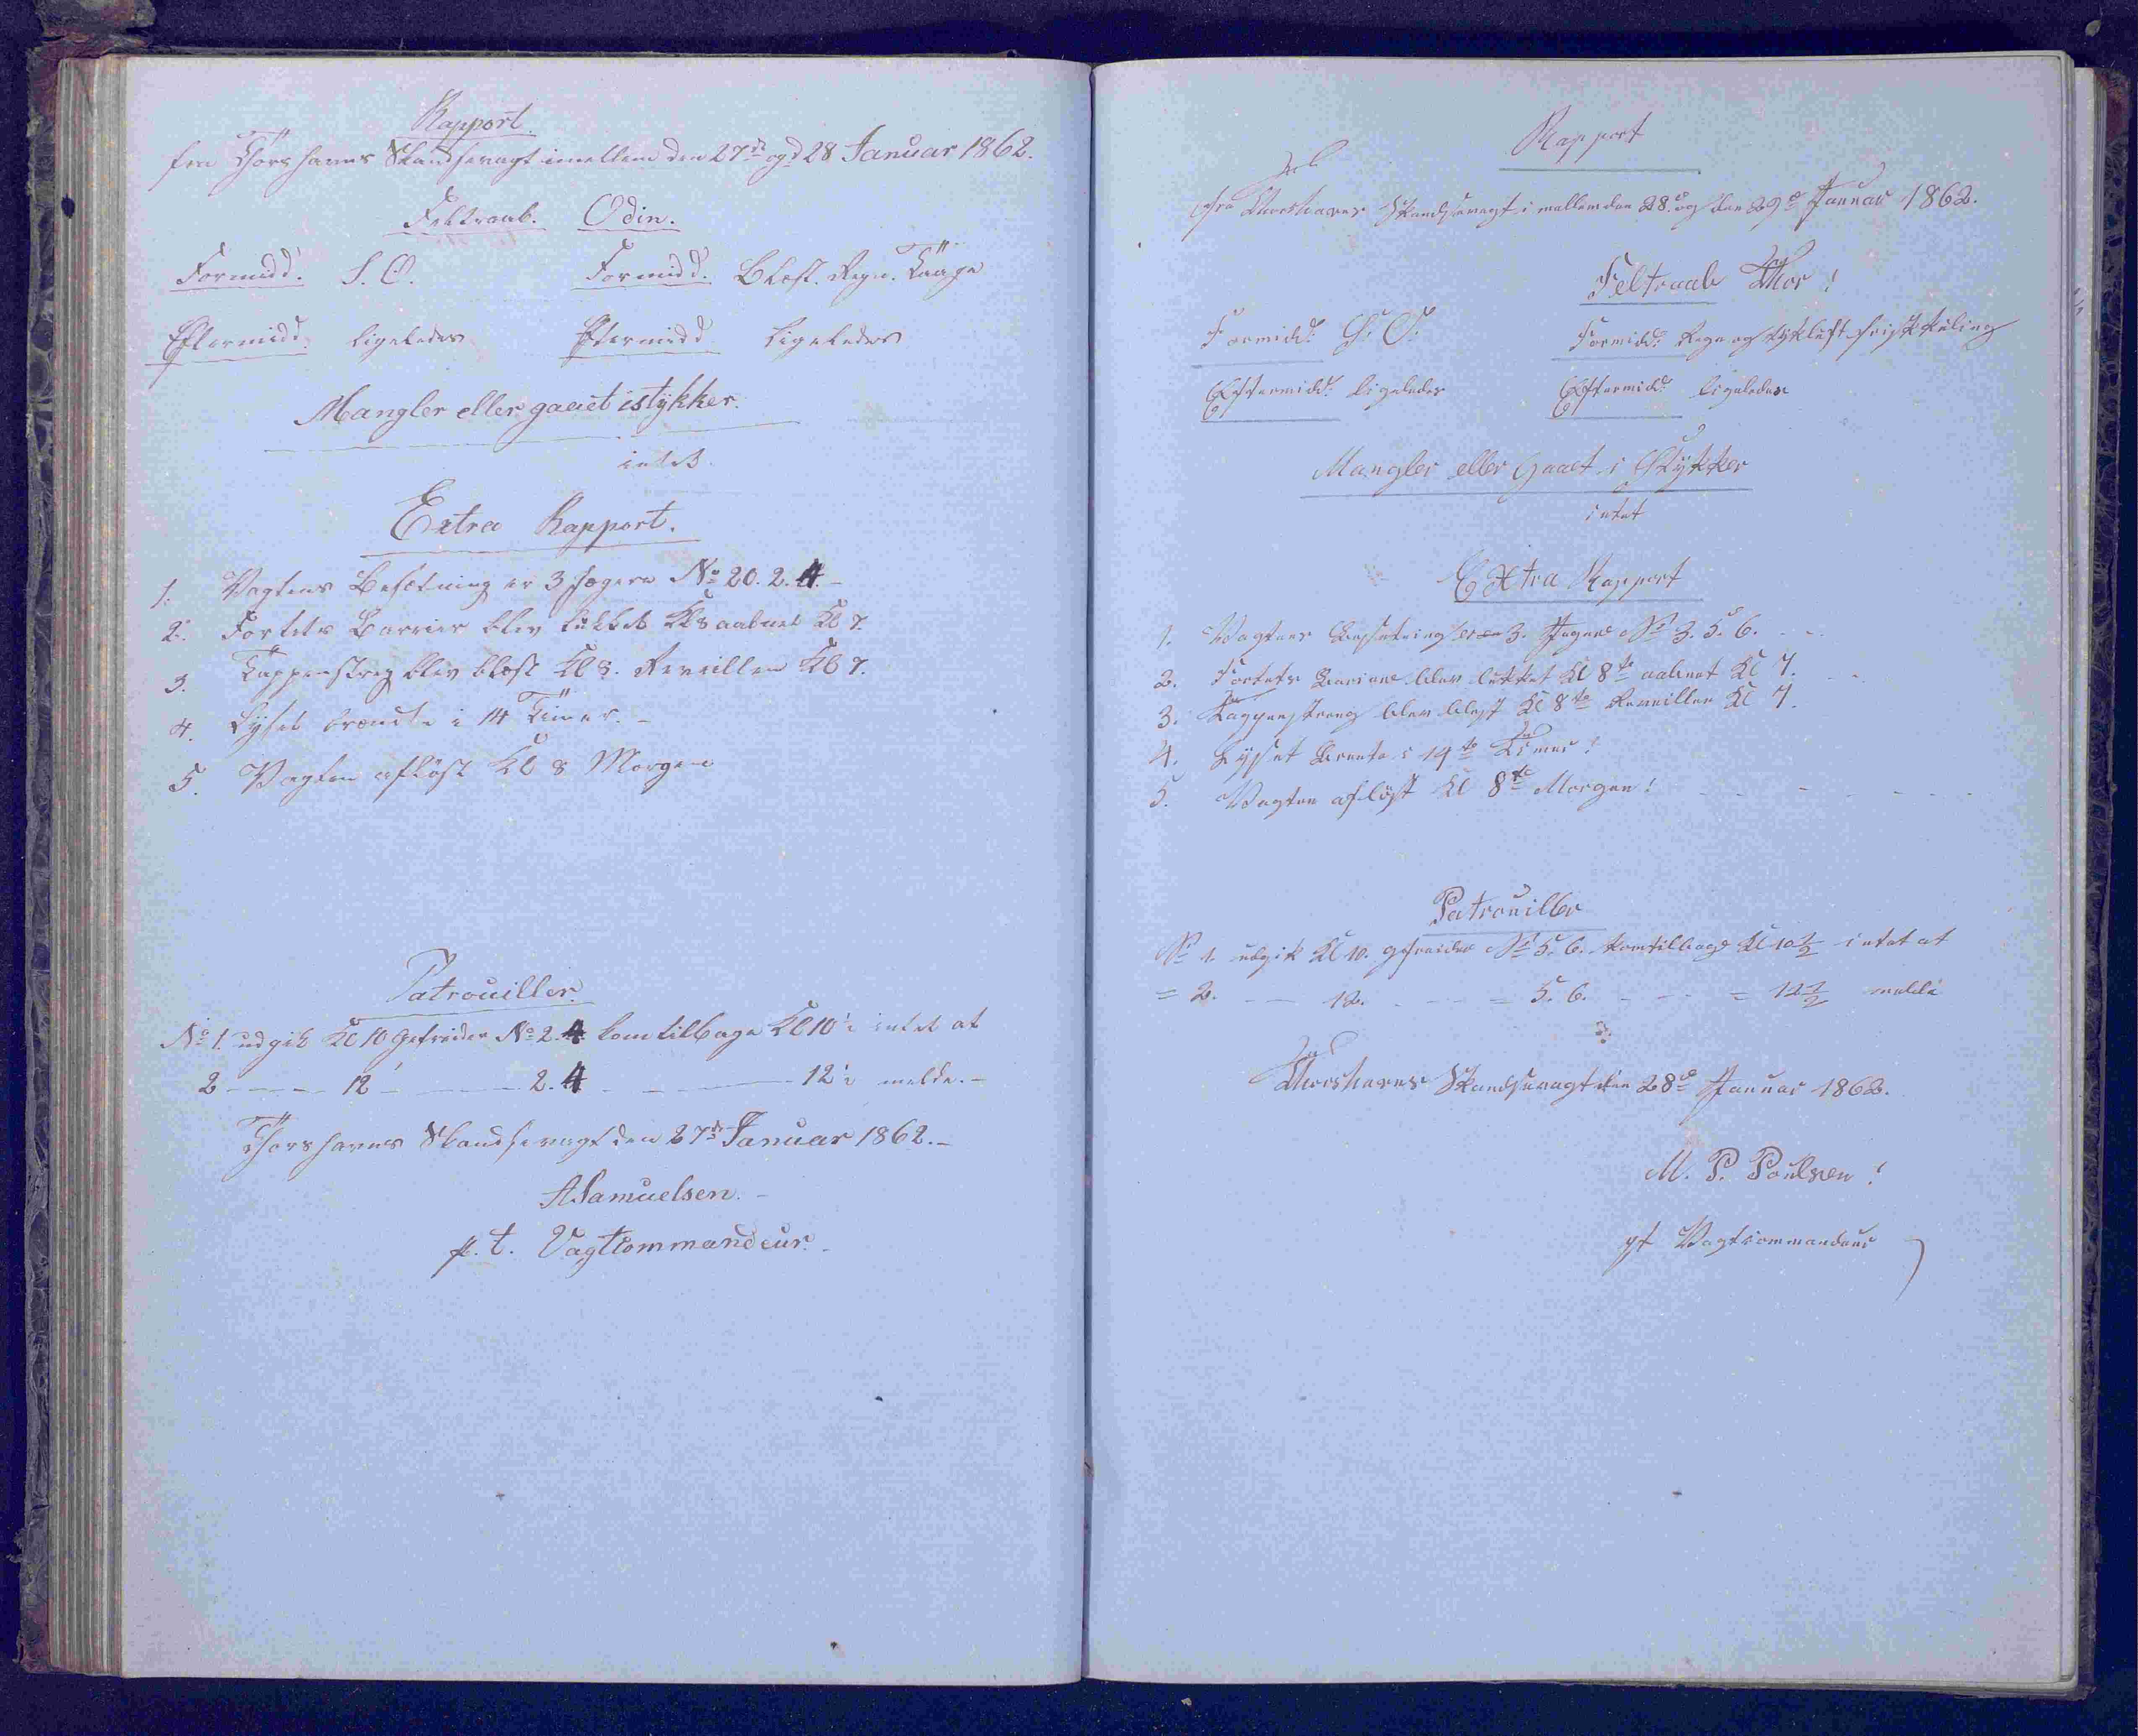 Rapport.
fra Thorshavns Skandsevagt imellem den 27de og d 28 Januar 1862.
Feltraab. Odin.
Formidd. S.O. Formidd. Blæst. Regn. Taage
Eftermidd. ligeledes Eftermidd ligeledes
Mangler eller gaaet istykker.
intet.
Extra Rapport.
1. Vagtens Besætning er 3 Jægere No 20. 2. 4. -
2. Fortets Barrier blev lukket Kl 8 aabnet Kl 7.
3. Tappenstreg blev blæst Kl 8. Reveillen Kl 7.
4. Lyset brændte i 14 Timer. -
5. Vagten afløst Kl 8 Morgen
Patrouiller.
No 1. udgik Kl 10 Gefreider No 2. 4 kom tilbage Kl 10½ intet at
2 - - - 12 - - - 2. 4 - - - 12½ melde. -
Thorshavns Skandsevagt den 27de Januar 1862. -
A Samuelsen. -
p. t. Vagtcommandeur. -
Rapport
fra Thorshavns Skandsevagt i mellem den 28d og den 29d Januar 1862.
Feltraab Thor!
Formidd: S. O. Formidd: Regn og tykluft frisk Kuling
Eftermidd: ligeledes Eftermidd: ligeledes
Mangler eller Gaaet i Stykker
intet
Extra Rapport
1. Vagtens Besætning er 3. Jægere No 3. 5. 6. - -
2. Fortets Bariere blev lukket Kl 8te aabnet Kl 7. - -
3. Tappenstreng blev blest Kl 8te Reveillen Kl 7.
4. Lysset Brente i 14te Timer!
5. Vagten afløst Kl 8te Morgen! - - - - - -
Patrouiller
No 1. udgik Kl 10. gefreider No 5. 6. kom tilbage Kl 10½ intet at
= 2. - - 12. - - - = 5. 6. - - - = 12½ melde
Thorshavns Skandsevagt den 28d Januar 1862.
M. P. Poulsen!
pt Vagtcommandeur